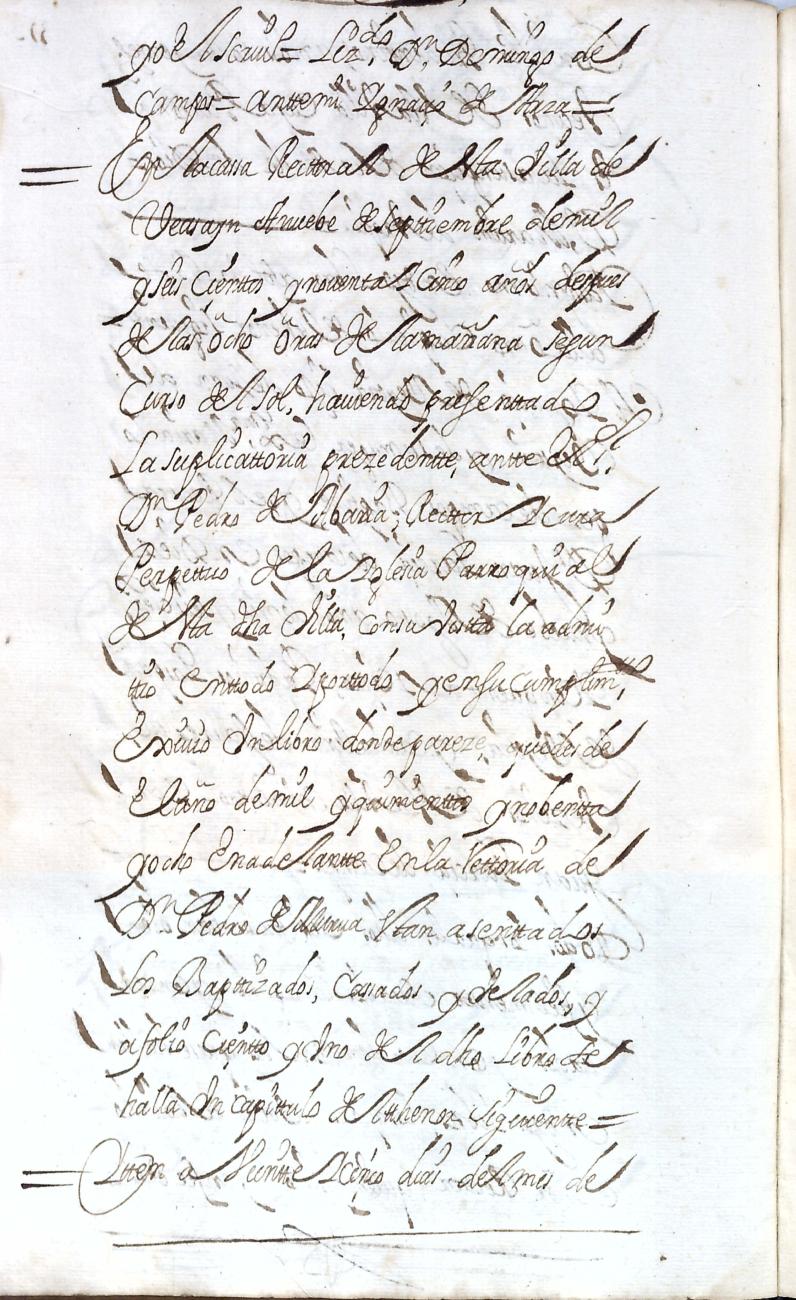 go El scriul= Liz.do Dn. Domingo de
Campos= anttemi Ygnaçio de
En la cassa Recttoral de esta Villa de
Veasayn a nuebe de septtiembre de mil
y seis Cientto y nouentta y Cinco años despues
de las ocho oras de la mañana segun
Curso del sol, hauiendo presenttado
La suplicattoria prezedentte, antte El
Dn. Pedro de Rector y cura
Perpettuo de la Yglesia Parroquial
de esta dha Villa, con su Vista la admi
ttio en ttodo y por ttodo y en su cumplimto,
Exiuio Un libro donde pareze, que desde
El año de mil y quinienttos y nobentta
y ocho En adelantte En la Rettoria de
Dn Pedro de Murua estan asenttados
Los Bapttizados, Cassados y Velados, y
a folio Cientto y Uno del dho Libro se
halla Un capittulo del thenor siguientte=
Yttem a Veintte y Cinco dias del mes de